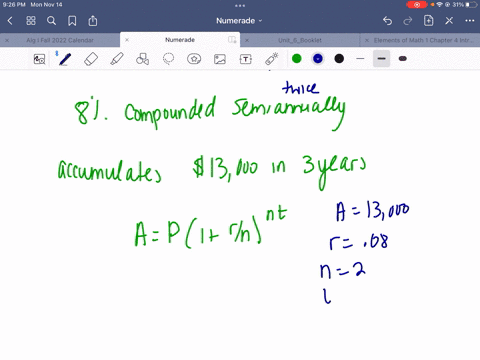 9:26 PM Mon Nov 14
Numerade
31%
Alg I Fall 2022 Calendar
Numerade
Unit_5_Booklet
Elements of Math 1 Chapter 4 Intr...
twice
8%. Compounded Semiannually
accumulates $13,000 in 3 years
A = P(1 + r/n)^nt
A = 13,000
r = .08
n = 2